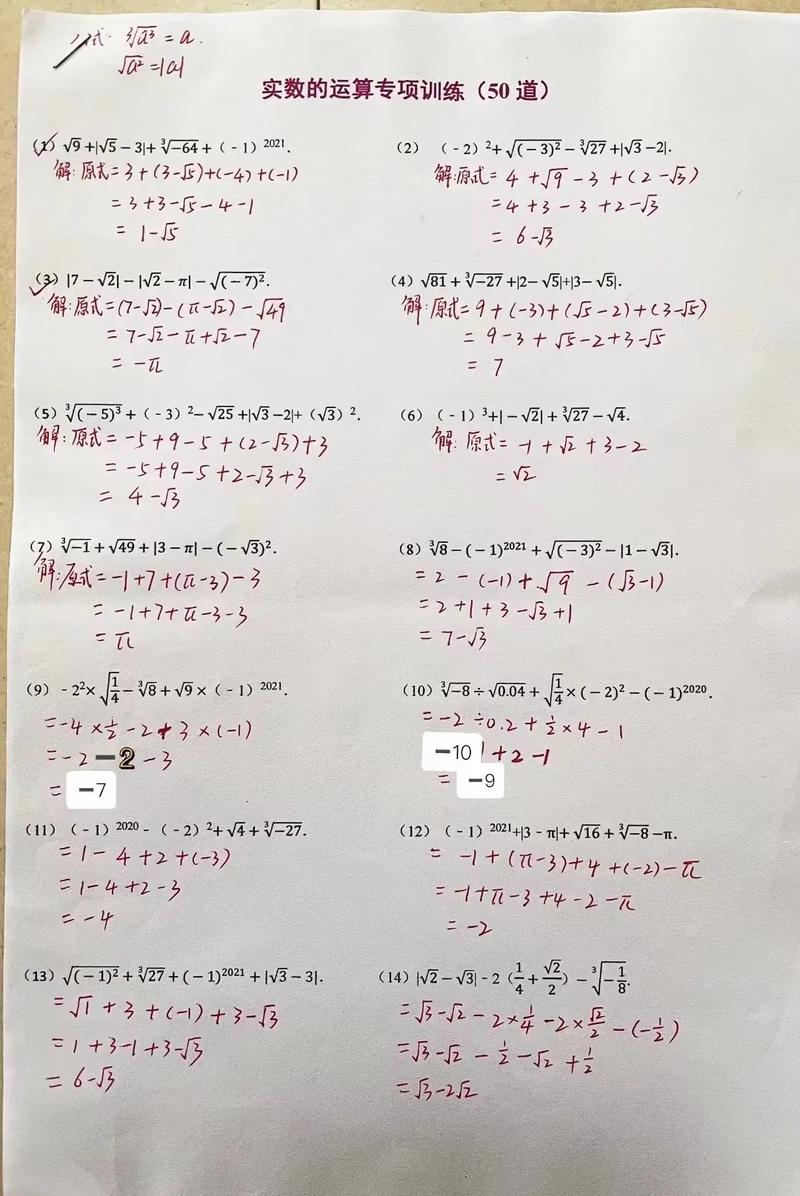 公式: ∛a³ = a.
√a² = |a|
实数的运算专项训练（50 道）
（1）√9 +|√5 − 3|+ ∛−64 +（ - 1）²⁰²¹.
解: 原式 = 3 + (3-√5) + (-4) + (-1)
= 3 + 3 - √5 - 4 - 1
= 1 - √5
（2）（ - 2）²+ √(−3)² − ∛27 +|√3 −2|.
解:原式 = 4 + √9 - 3 + (2 - √3)
= 4 + 3 - 3 + 2 - √3
= 6 - √3
（3）|7 − √2| − |√2 − π| − √(−7)².
解:原式 = (7-√2) - (π-√2) - √49
= 7 - √2 - π + √2 - 7
= -π
（4）√81 + ∛−27 +|2− √5|+|3− √5|.
解:原式 = 9 + (-3) + (√5 - 2) + (3 - √5)
= 9 - 3 + √5 - 2 + 3 - √5
= 7
（5）∛(−5)³ +（ - 3）²− √25 +|√3 −2|+（√3）².
解: 原式 = -5 + 9 - 5 + (2 - √3) + 3
= -5 + 9 - 5 + 2 - √3 + 3
= 4 - √3
（6）（ - 1）³+| − √2| + ∛27 − √4.
解: 原式 = -1 + √2 + 3 - 2
= √2
（7）∛−1 + √49 + |3 − π| − (−√3)².
解:原式 = -1 + 7 + (π - 3) - 3
= -1 + 7 + π - 3 - 3
= π
（8）∛8 − (−1)²⁰²¹ + √(−3)² − |1 − √3|.
= 2 - (-1) + √9 - (√3 - 1)
= 2 + 1 + 3 - √3 + 1
= 7 - √3
（9）- 2²× √1/4 − ∛8 + √9 ×（ - 1）²⁰²¹.
= -4 × 1/2 - 2 + 3 × (-1)
= -2 − 2 - 3
= −7
（10）∛−8 ÷ √0.04 + √1/4 × (−2)² − (−1)²⁰²⁰.
= -2 ÷ 0.2 + 1/2 × 4 - 1
−10 + 2 - 1
= −9
（11）（ - 1）²⁰²⁰ -（ - 2）²+ √4 + ∛−27.
= 1 - 4 + 2 + (-3)
= 1 - 4 + 2 - 3
= -4
（12）（ - 1）²⁰²¹+|3 - π|+ √16 + ∛−8 −π.
= -1 + (π-3) + 4 + (-2) - π
= -1 + π - 3 + 4 - 2 - π
= -2
（13）√(−1)² + ∛27 + (−1)²⁰²¹ + |√3 − 3|.
= √1 + 3 + (-1) + 3 - √3
= 1 + 3 - 1 + 3 - √3
= 6 - √3
（14）|√2 − √3| - 2（1/4 + √2/2）− ∛−1/8.
= √3 - √2 - 2 × 1/4 - 2 × √2/2 - (-1/2)
= √3 - √2 - 1/2 - √2 + 1/2
= √3 - 2√2